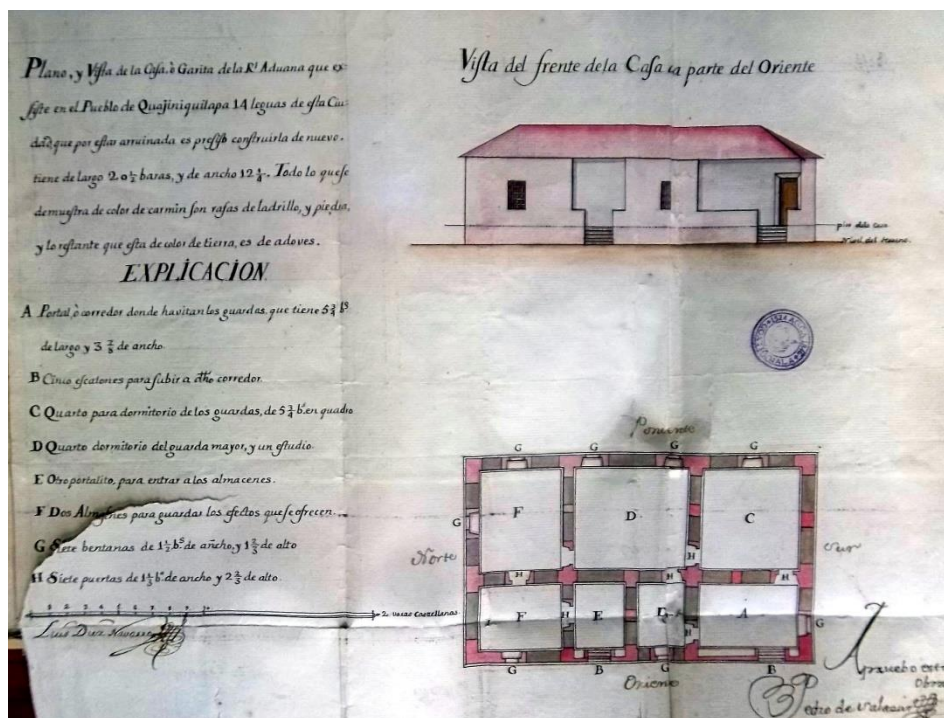 Plano, y Vista de la Casa, ò Garita de la Rl. Aduana que ex
siste en el Pueblo de Quajiniquilapa 14 leguas de esta Ciu
dad, que por estar arruinada es presiso construirla de nuevo.
tiene de largo 20½ baras, y de ancho 12¼. Todo lo que se
demuestra de color de carmin son rafas de ladrillo, y piedra,
y lo restante que esta de color de tierra, es de adoves.
EXPLICACION
A Portal, ò corredor donde havitan los guardas, que tiene 5¾ bs
de largo y 3 de ancho
B Cinco escalones para subir a dho corredor.
C Quarto para dormitorio de los guardas, de 5¾ bs. en quadro
D Quarto dormitorio del guarda mayor, y un estudio.
E Otro portalito, para entrar a los almacenes.
F Dos Almasenes para guardar los efectos que se ofrecen.
G Siete bentanas de 1½ bs. de ancho, y 1⅔ de alto
H Siete puertas de 1⅓ bs. de ancho y 2⅔ de alto.
1 2 3 4 5 6 7 8 9 10
varas Castellanas
Luis Diez Navarro
Vista del frente de la Casa a la parte del Oriente
piso dela Casa
Nivel del terreno
Poniente
G G G G
F D C
G
Norte
Sur
H H H
H H
F E D A
G
H
G B G B
Oriente
Apruebo esta
Obra
Pedro de Salazar